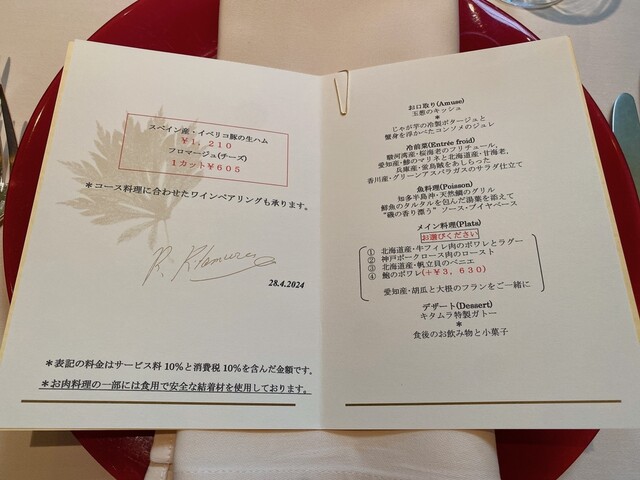 スペイン産・イベリコ豚の生ハム
￥1, 210
フロマージュ(チーズ)
1カット￥605
＊コース料理に合わせたワインペアリングも承ります。
R. Kitamura
28.4.2024
＊表記の料金はサービス料10％と消費税10％を含んだ金額です。
＊お肉料理の一部には食用で安全な結着材を使用しております。
お口取り(Amuse)
玉葱のキッシュ
＊
じゃが芋の冷製ポタージュと
蟹身を浮かべたコンソメのジュレ
冷前菜(Entrée froid)
駿河湾産・桜海老のフリチュール、
愛知産・鯵のマリネと北海道産・甘海老、
兵庫産・蛍烏賊をあしらった
香川産・グリーンアスパラガスのサラダ仕立て
魚料理(Poisson)
知多半島沖・天然鯛のグリル
鮮魚のタルタルを包んだ湯葉を添えて
“磯の香り漂う” ソース・ブイヤベース
メイン料理(Plats)
お選びください
① 北海道産・牛フィレ肉のポワレとラグー
② 神戸ポークロース肉のロースト
③ 北海道産・帆立貝のベニエ
④ 鮑のポワレ(+￥3, 630)
愛知産・胡瓜と大根のフランをご一緒に
デザート(Dessert)
キタムラ特製ガトー
＊
食後のお飲み物と小菓子